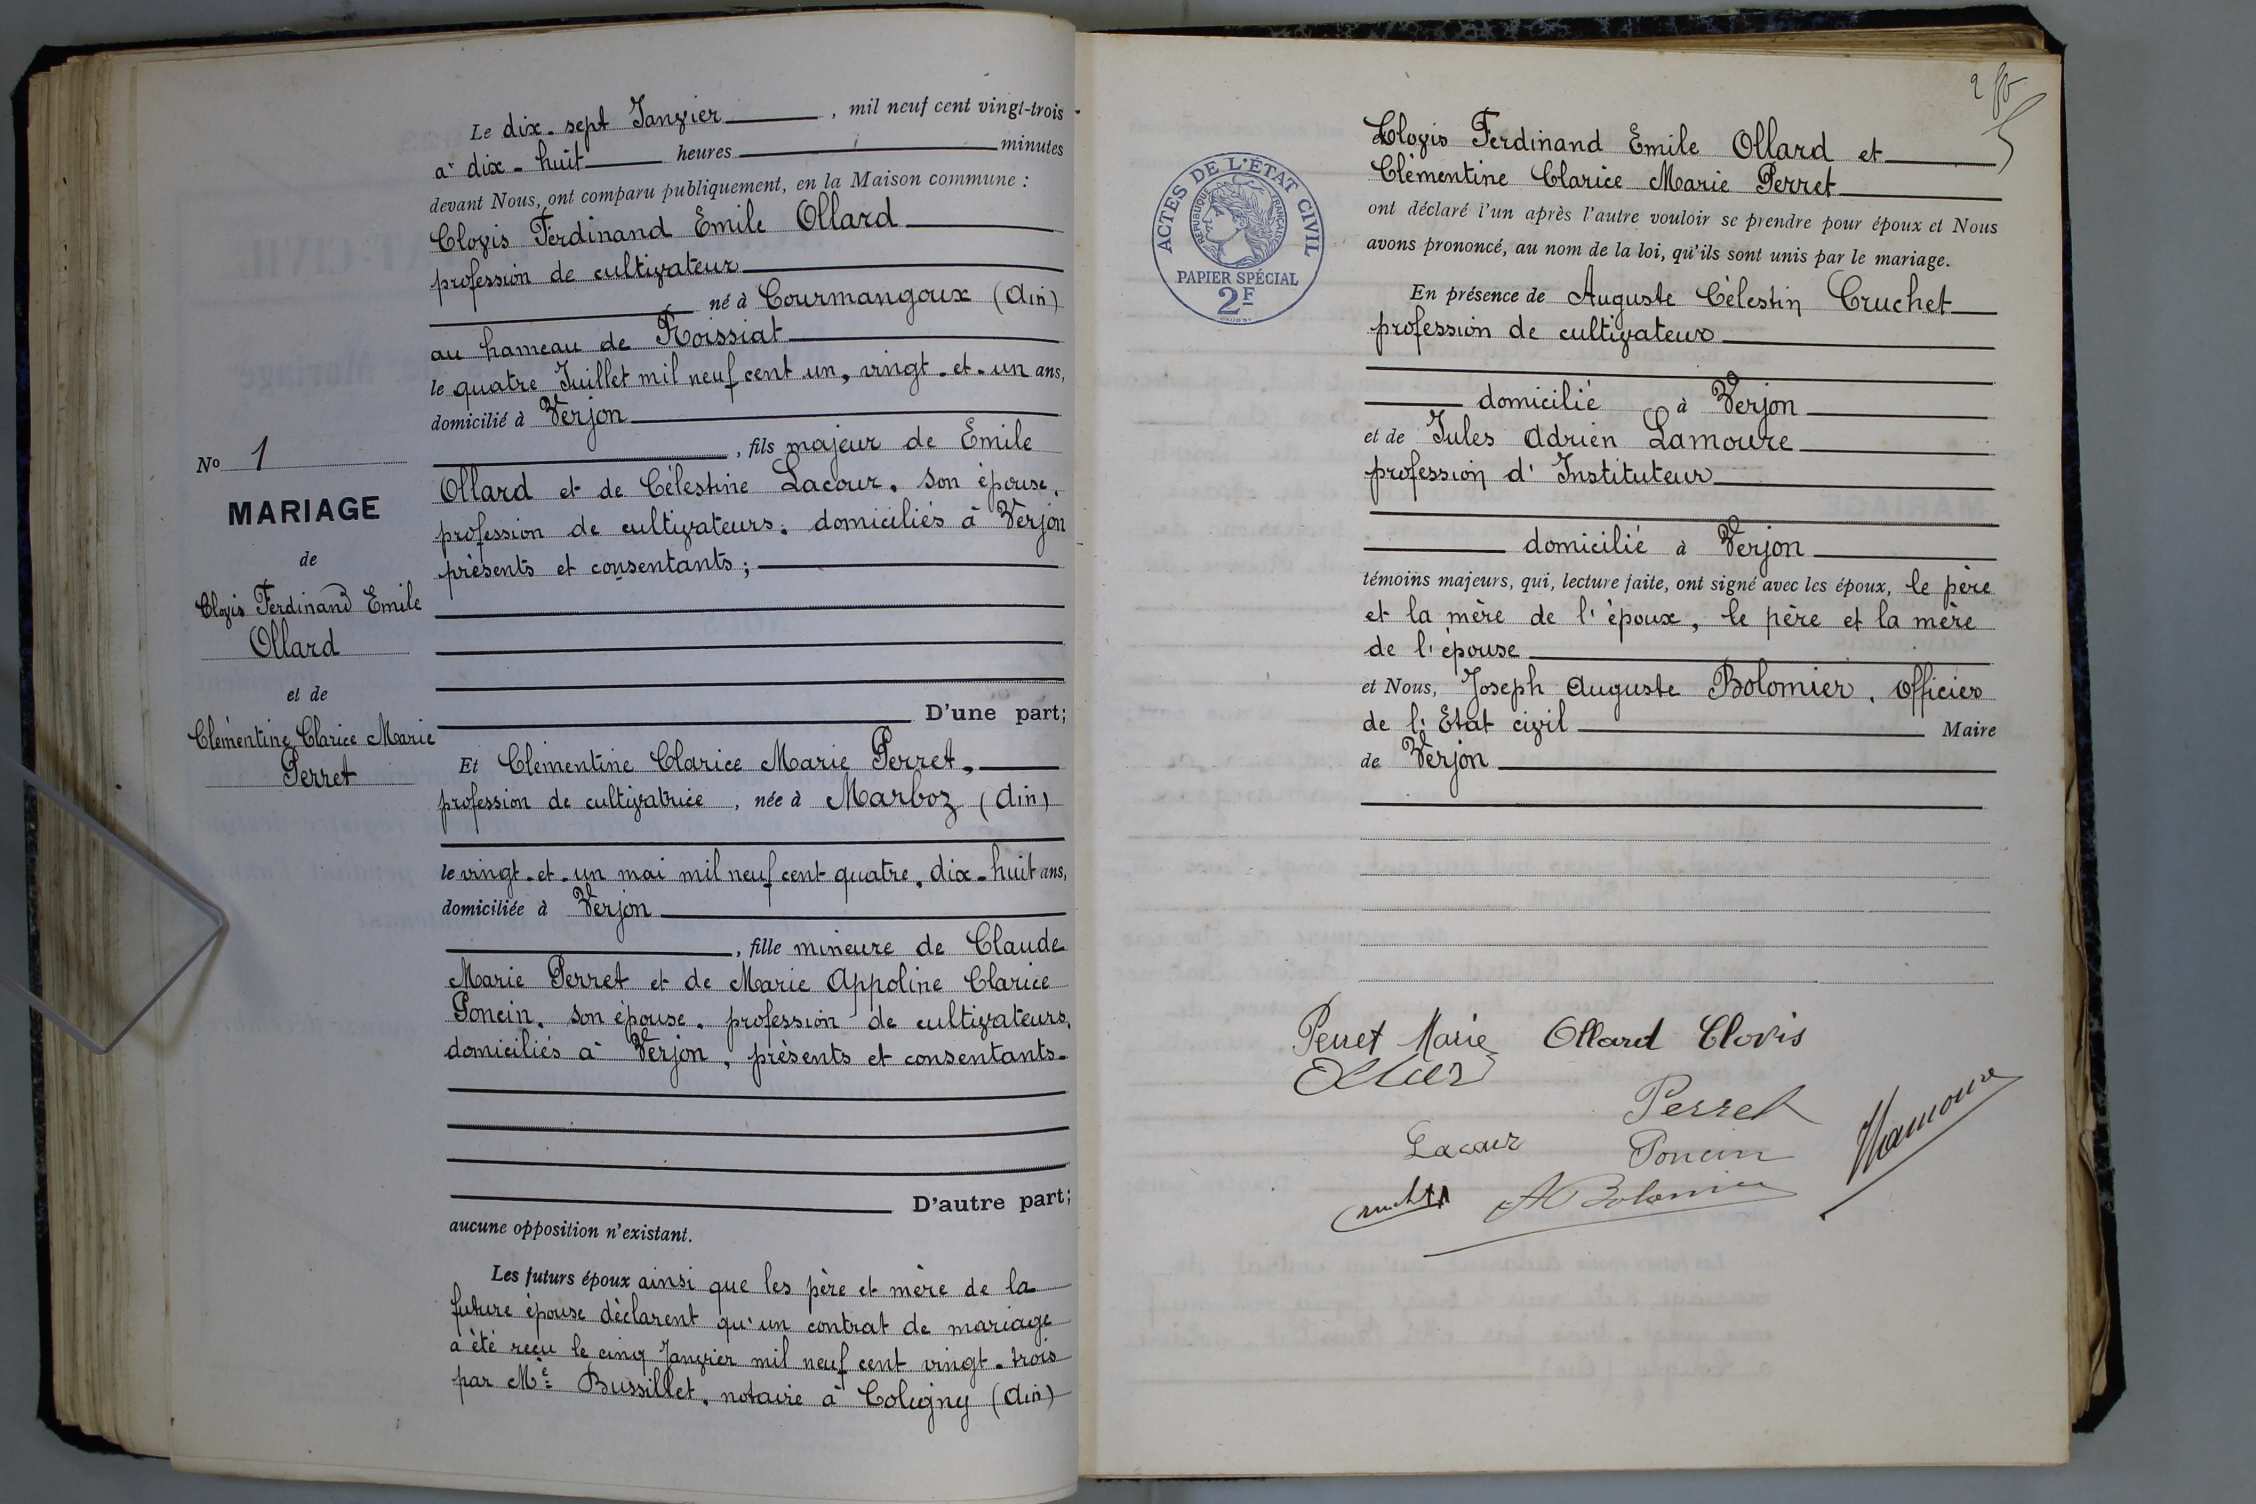 Le dix-sept Janvier, mil neuf cent vingt-trois
à dix-huit heures minutes
devant Nous, ont comparu publiquement, en la Maison commune :
Clovis Ferdinand Emile Ollard
profession de cultivateur
né à Courmangoux (Ain)
au hameau de Roissiat
le quatre Juillet mil neuf cent un, vingt-et-un ans,
domicilié à Verjon
, fils majeur de Emile
Ollard et de Célestine Lacour, son épouse,
profession de cultivateurs, domiciliés à Verjon
présents et consentants ;
D'une part;
No 1
MARIAGE
de
Clovis Ferdinand Emile
Ollard
et de
Clémentine Clarice Marie
Perret
Et Clémentine Clarice Marie Perret,
profession de cultivatrice, née à Marboz (Ain)
le vingt-et-un mai mil neuf cent quatre, dix-huit ans,
domiciliée à Verjon
, fille mineure de Claude
Marie Perret et de Marie Appoline Clarice
Poncin, son épouse, profession de cultivateurs,
domiciliés à Verjon, présents et consentants.
D'autre part;
aucune opposition n'existant.
Les futurs époux ainsi que les père et mère de la
future épouse déclarent qu'un contrat de mariage
a été reçu le cinq Janvier mil neuf cent vingt-trois
par Me Bussillet, notaire à Coligny (Ain)
ACTES DE L'ÉTAT CIVIL
RÉPUBLIQUE FRANÇAISE
PAPIER SPÉCIAL
2F
Clovis Ferdinand Emile Ollard et
Clémentine Clarice Marie Perret
ont déclaré l'un après l'autre vouloir se prendre pour époux et Nous
avons prononcé, au nom de la loi, qu'ils sont unis par le mariage.
En présence de Auguste Célestin Cruchet
profession de cultivateur
domicilié à Verjon
et de Jules Adrien Lamoure
profession d'Instituteur
domicilié à Verjon
témoins majeurs, qui, lecture faite, ont signé avec les époux, le père
et la mère de l'époux, le père et la mère
de l'épouse
et Nous, Joseph Auguste Bolomier, Officier
de l'Etat civil Maire
de Verjon
Perret Marie Ollard Clovis
Perret
Lacour Poncin Lamoure
A Bolomier